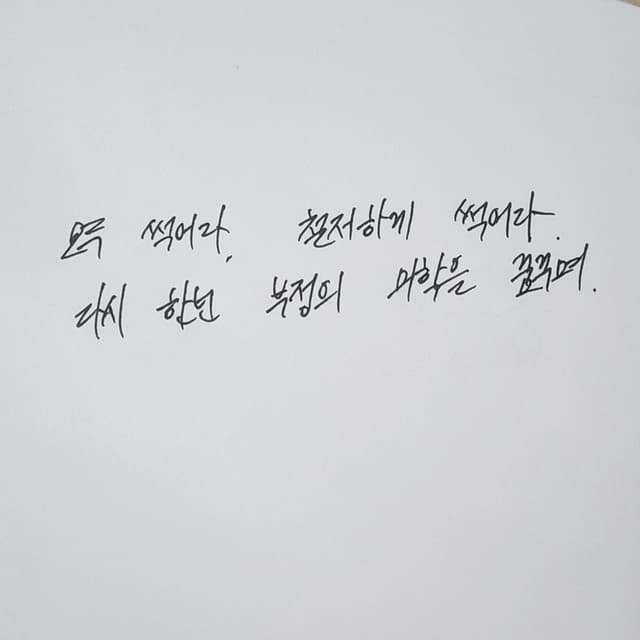 모두 썩어라, 철저하게 썩어라.
다시 한번 부정의 미학을 꿈꾸며.